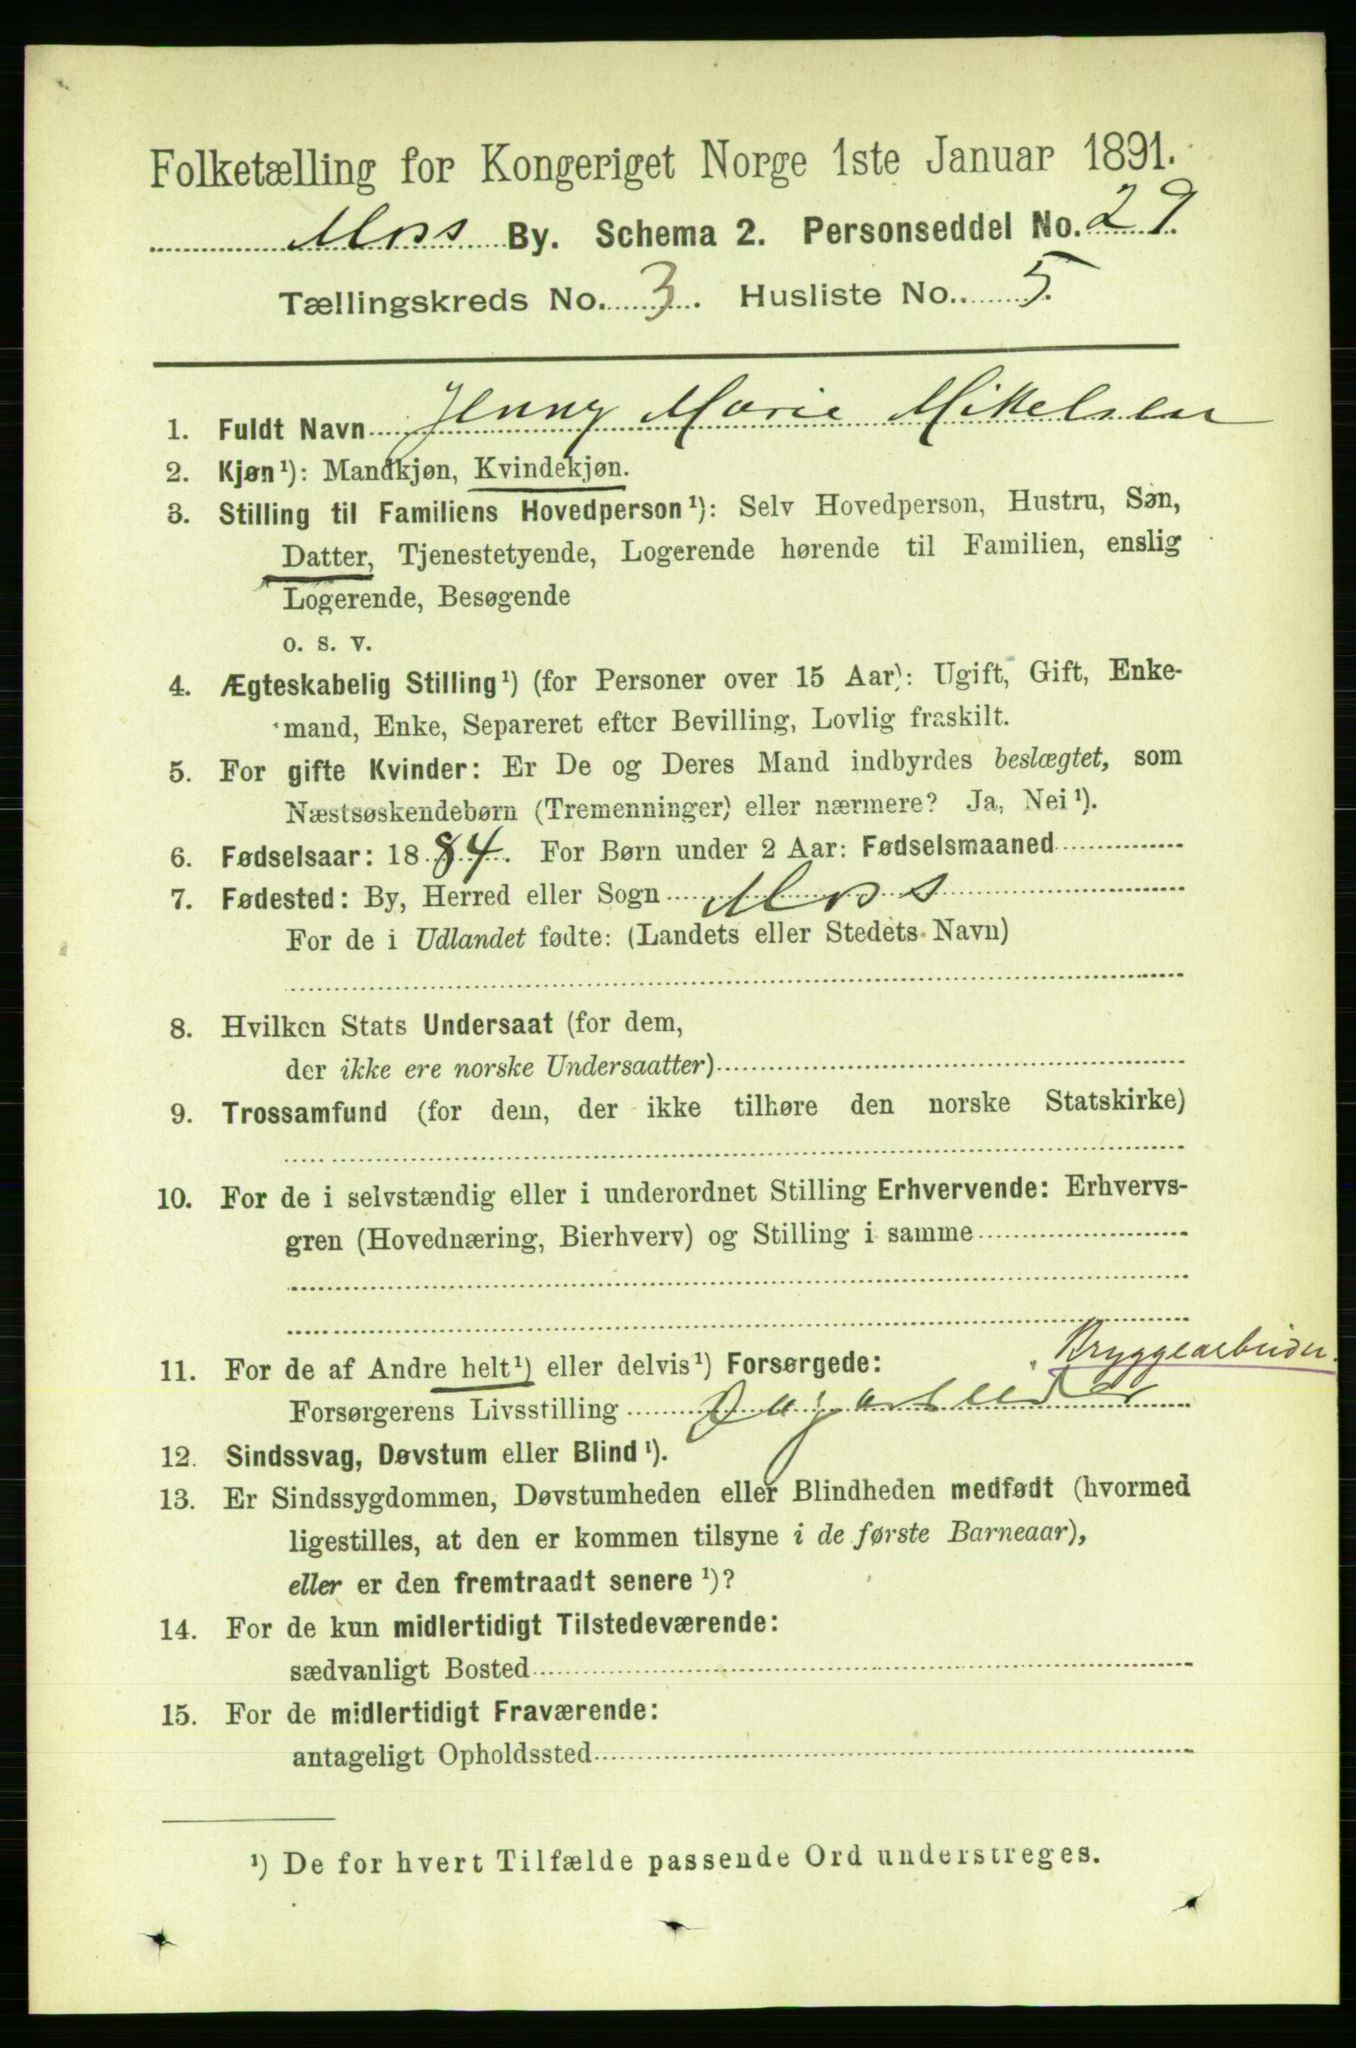 Folketælling for Kongeriget Norge 1ste Januar 1891.
Moss By. Schema 2. Personseddel No. 29.
Tællingskreds No. 3. Husliste No. 5.
1. Fuldt Navn Jenny Marie Mikkelsen
2. Kjøn¹): Mandkjøn, Kvindekjøn.
3. Stilling til Familiens Hovedperson¹): Selv Hovedperson, Hustru, Søn,
Datter, Tjenestetyende, Logerende hørende til Familien, enslig
Logerende, Besøgende
o. s. v.
4. Ægteskabelig Stilling¹) (for Personer over 15 Aar): Ugift, Gift, Enke-
mand, Enke, Separeret efter Bevilling, Lovlig fraskilt.
5. For gifte Kvinder: Er De og Deres Mand indbyrdes beslægtet, som
Næstsøskendebørn (Tremenninger) eller nærmere? Ja, Nei¹).
6. Fødselsaar: 1884. For Børn under 2 Aar: Fødselsmaaned
7. Fødested: By, Herred eller Sogn Moss
For de i Udlandet fødte: (Landets eller Stedets Navn)
8. Hvilken Stats Undersaat (for dem,
der ikke ere norske Undersaatter)
9. Trossamfund (for dem, der ikke tilhøre den norske Statskirke)
10. For de i selvstændig eller i underordnet Stilling Erhvervende: Erhvervs-
gren (Hovednæring, Bierhverv) og Stilling i samme
Bryggearbeider.
11. For de af Andre helt¹) eller delvis¹) Forsørgede:
Forsørgerens Livsstilling Dagarbeider
12. Sindssvag, Døvstum eller Blind¹).
13. Er Sindssygdommen, Døvstumheden eller Blindheden medfødt (hvormed
ligestilles, at den er kommen tilsyne i de første Barneaar),
eller er den fremtraadt senere¹)?
14. For de kun midlertidigt Tilstedeværende:
sædvanligt Bosted
15. For de midlertidigt Fraværende:
antageligt Opholdssted
¹) De for hvert Tilfælde passende Ord understreges.